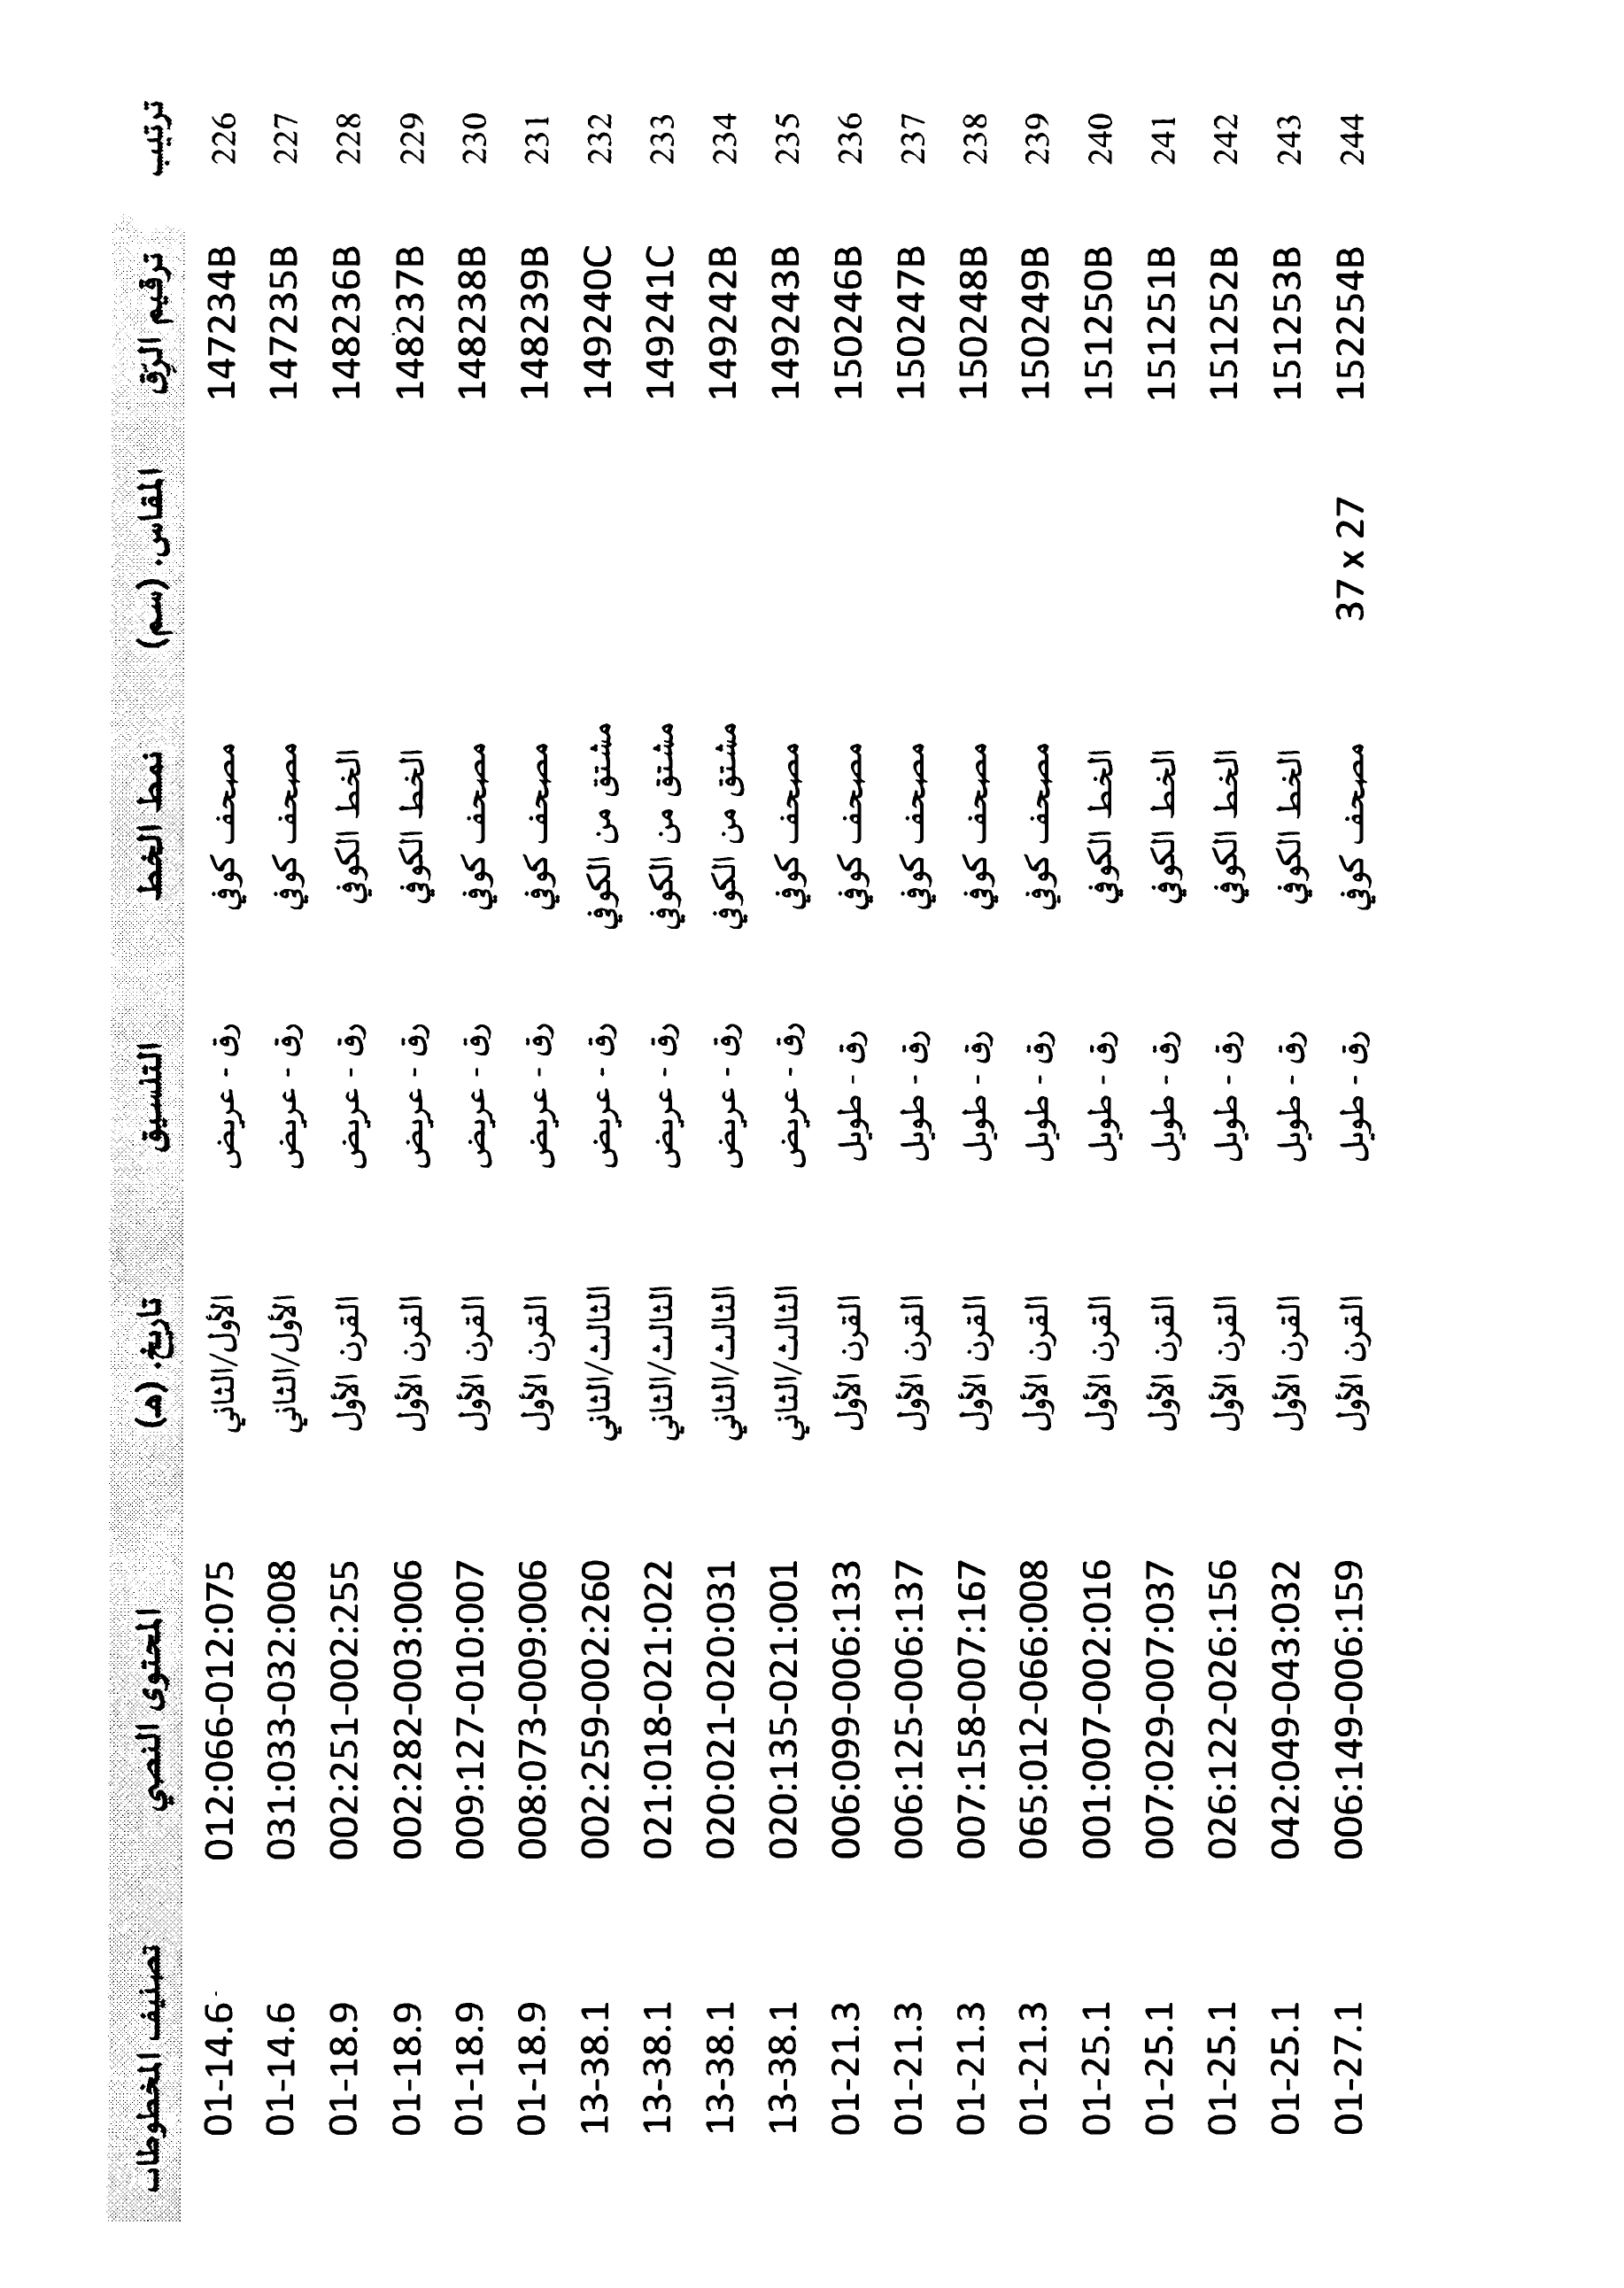 ترتيب ترقيم الرّق المقاس. (سم) نمط الخط التنسيق تاريخ. (هـ) المحتوى النصي تصنيف المخطوطات
226 147234B مصحف كوفي رق - عريض الأول/الثاني 012:066-012:075 01-14.6
227 147235B مصحف كوفي رق - عريض الأول/الثاني 031:033-032:008 01-14.6
228 148236B الخط الكوفي رق - عريض القرن الأول 002:251-002:255 01-18.9
229 148237B الخط الكوفي رق - عريض القرن الأول 002:282-003:006 01-18.9
230 148238B مصحف كوفي رق - عريض القرن الأول 009:127-010:007 01-18.9
231 148239B مصحف كوفي رق - عريض القرن الأول 008:073-009:006 01-18.9
232 149240C مشتق من الكوفي رق - عريض الثالث/الثاني 002:259-002:260 13-38.1
233 149241C مشتق من الكوفي رق - عريض الثالث/الثاني 021:018-021:022 13-38.1
234 149242B مشتق من الكوفي رق - عريض الثالث/الثاني 020:021-020:031 13-38.1
235 149243B مصحف كوفي رق - عريض الثالث/الثاني 020:135-021:001 13-38.1
236 150246B مصحف كوفي رق - طويل القرن الأول 006:099-006:133 01-21.3
237 150247B مصحف كوفي رق - طويل القرن الأول 006:125-006:137 01-21.3
238 150248B مصحف كوفي رق - طويل القرن الأول 007:158-007:167 01-21.3
239 150249B مصحف كوفي رق - طويل القرن الأول 065:012-066:008 01-21.3
240 151250B الخط الكوفي رق - طويل القرن الأول 001:007-002:016 01-25.1
241 151251B الخط الكوفي رق - طويل القرن الأول 007:029-007:037 01-25.1
242 151252B الخط الكوفي رق - طويل القرن الأول 026:122-026:156 01-25.1
243 151253B الخط الكوفي رق - طويل القرن الأول 042:049-043:032 01-25.1
244 152254B 37 x 27 مصحف كوفي رق - طويل القرن الأول 006:149-006:159 01-27.1